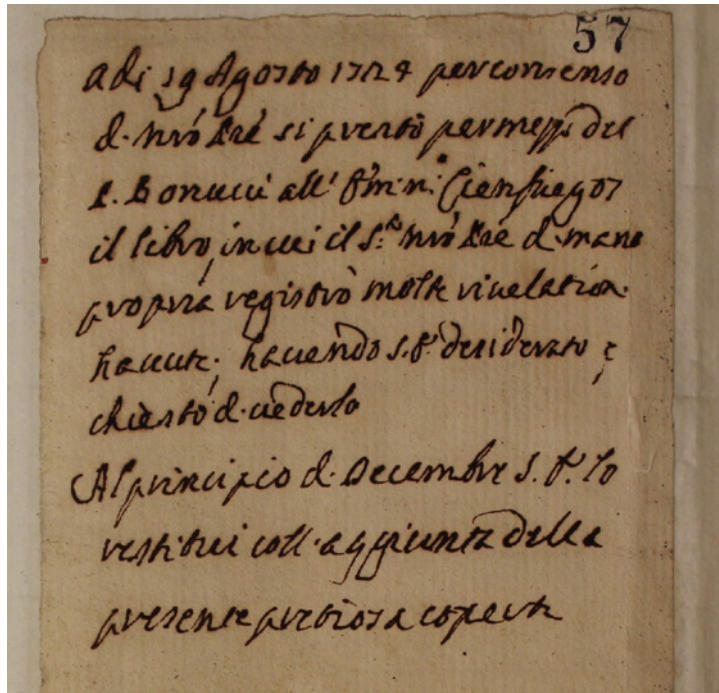 57
Adi 19 Agosto 1724 per consenso
di Nr̃o Pr̃e si prestò per mezzo del
P. Bonucci all' Em̃.mo Cienfuegos
il libro, in cui il S.to Nr̃o Pr̃e di mano
propria registrò molte rivelation.
havute; havendo S. E. desiderato e
chiesto di vederlo
Al principio di Decembre S. E. lo
restitui coll'aggiunta della
presente pretiosa coperta